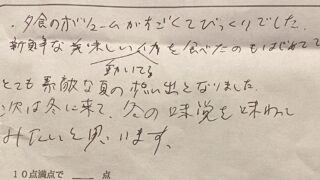 ・夕食のボリュームがすごくてびっくりでした。
新鮮な美味しいイカを食べたのもはじめてで
動いてる
とても素敵な夏の想い出となりました。
次は冬に来て、冬の味覚を味わって
みたいと思います。
10点満点で 点